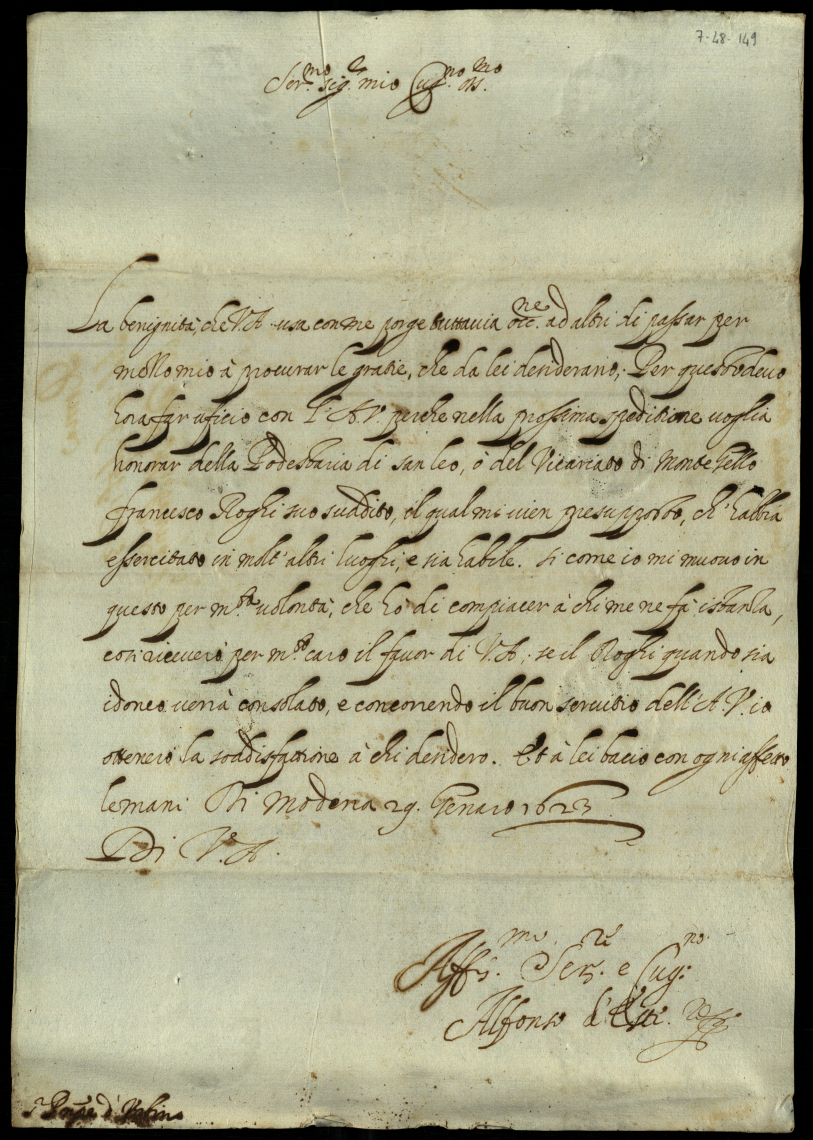 7-48-149
Ser.mo Sig.r mio Cug.no oss.mo
La benignità, che V.A. usa con me porge tuttavia occ.ne ad altri di passar per
mezzo mio à procurar le gratie, che da lei desiderano; Per questo devo
hora far uficio con l'A.V. perche nella prossima speditione voglia
honorar della Podestaria di San Leo, ò del Vicariato di Monte
Francesco Roghi suo suddito, il qual mi vien presupposto, ch'habbia
essercitato in molt'altri luoghi, e sia habile. Si come io mi muovo in
questo per m.ta volontà, che hò di compiacer à chi me ne fà istanza,
così riceverò per m.to caro il favor di V.A. se il Roghi quando sia
idoneo verrà consolato, e concorrendo il buon servitio dell'A.V. io
otterrò la sodisfattione à chi desidero. Et à lei bacio con ogni affetto
le mani Di Modena 29. Genaro 1623
Di V.A.
Aff.mo Ser.re e Cug.no
Alfonso d'Este
S.r Prñpe d'Urbino